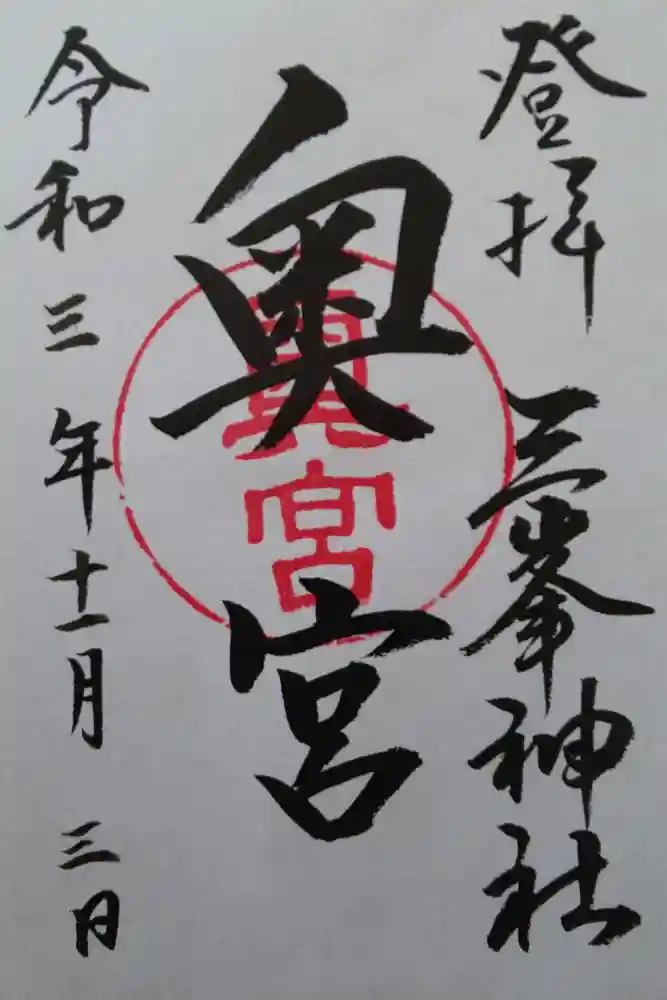 登拝 三峯神社
奥宮
奥宮
令和三年十一月 三日